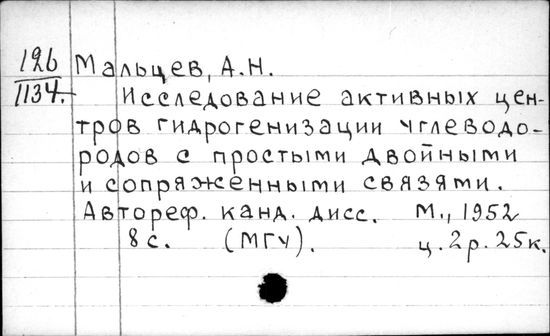 126 Мальцев, А.Н.
1134. Исследование активных цен-
тров гидрогенизации углеводо-
родов с простыми двойными
и сопряженными связями.
Автореф. канд. дисс. М., 1952
8 с. (МГУ). ц. 2 р. 25 к.